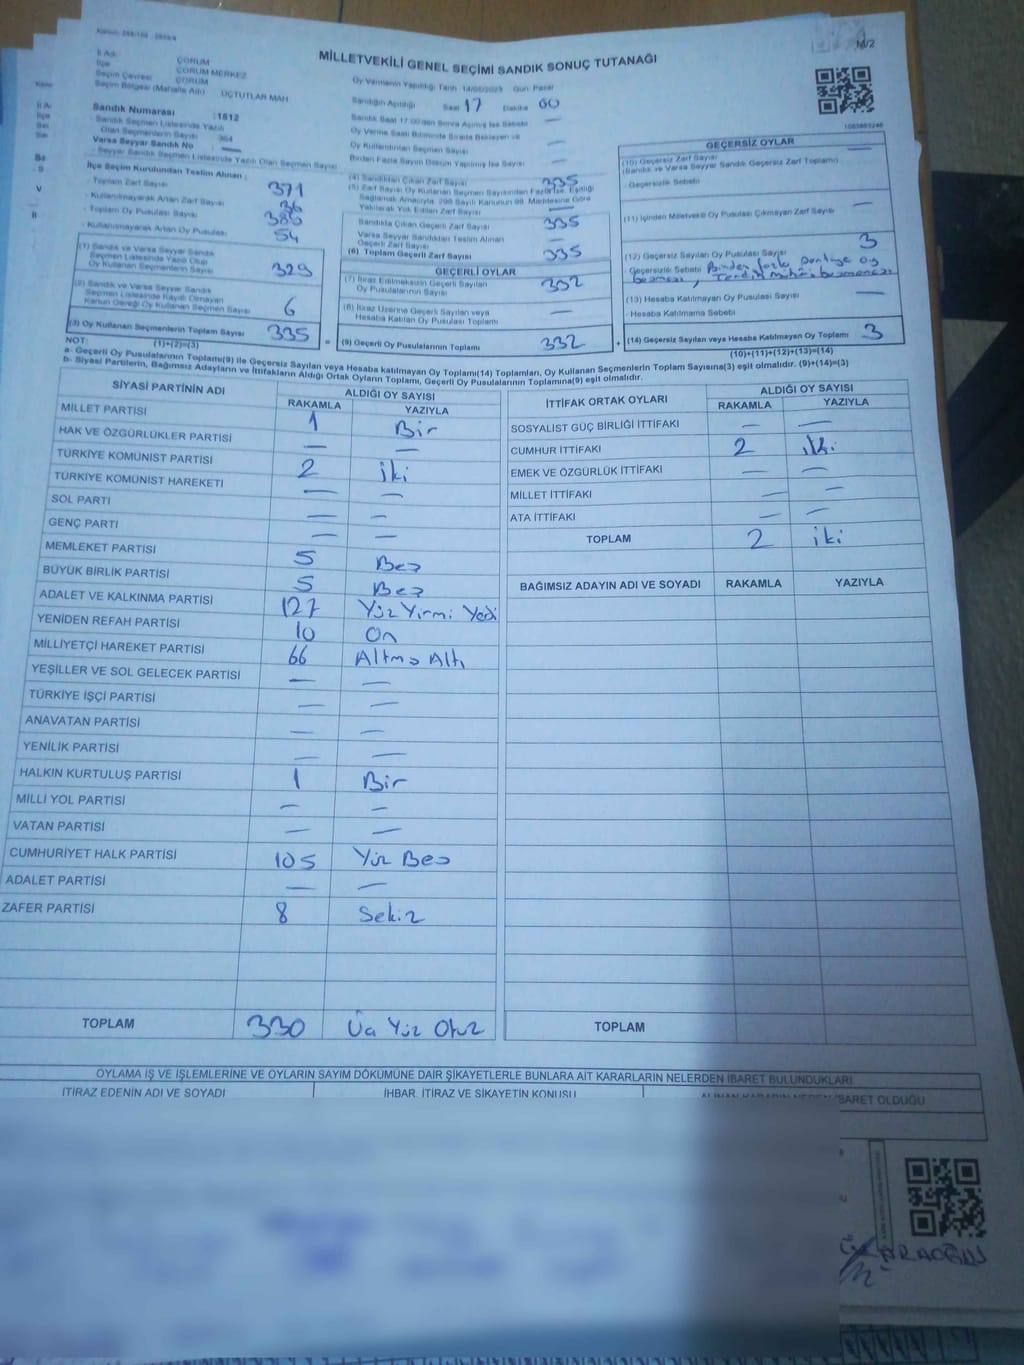 M/2
MİLLETVEKİLİ GENEL SEÇİMİ SANDIK SONUÇ TUTANAĞI
İl Adı: ÇORUM
İlçe ÇORUM MERKEZ
Seçim Çevresi ÇORUM
Seçim Bölgesi (Mahalle Adı) ÜÇTUTLAR MAH
Sandık Numarası :1812
- Sandık Seçmen Listesinde Yazılı
Olan Seçmenlerin Sayısı 364
Varsa Seyyar Sandık No —
- Seyyar Sandık Seçmen Listesinde Yazılı Olan Seçmen Sayısı
İlçe Seçim Kurulundan Teslim Alınan :
- Toplam Zarf Sayısı 371
- Kullanılmayarak Artan Zarf Sayısı 36
- Toplam Oy Pusulası Sayısı
- Kullanılmayarak Artan Oy Pusulası 54
(1) Sandık ve Varsa Seyyar Sandık
Seçmen Listesinde Yazılı Olup
Oy Kullanan Seçmenlerin Sayısı 329
(2) Sandık ve Varsa Seyyar Sandık
Seçmen Listesinde Kayıtlı Olmayan
Kanun Gereği Oy Kullanan Seçmen Sayısı 6
(3) Oy Kullanan Seçmenlerin Toplam Sayısı 335
(1)+(2)=(3)
Oy Vermenin Yapıldığı Tarih 14/05/2023 Gün Pazar
Sandığın Açıldığı Saat 17 Dakika 00
Sandık Saat 17.00'den Sonra Açılmış İse Sebebi —
Oy Verme Saati Bitiminde Sırada Bekleyen ve
Oy Kullandırılan Seçmen Sayısı —
Birden Fazla Sayım Döküm Yapılmış İse Sayısı —
(4) Sandıktan Çıkan Zarf Sayısı 335
(5) Zarf Sayısı Oy Kullanan Seçmen Sayısından Fazla İse, Eşitliği
Sağlamak Amacıyla, 298 Sayılı Kanunun 98. Maddesine Göre
Yakılarak Yok Edilen Zarf Sayısı —
Sandıkta Çıkan Geçerli Zarf Sayısı 335
Varsa Seyyar Sandıktan Teslim Alınan
Geçerli Zarf Sayısı —
(6) Toplam Geçerli Zarf Sayısı 335
GEÇERLİ OYLAR
(7) İtiraz Edilmeksizin Geçerli Sayılan
Oy Pusulalarının Sayısı 332
(8) İtiraz Üzerine Geçerli Sayılan veya
Hesaba Katılan Oy Pusulası Toplamı —
= (9) Geçerli Oy Pusulalarının Toplamı 332 +
1083883246
GEÇERSİZ OYLAR
(10) Geçersiz Zarf Sayısı —
(Sandık ve Varsa Seyyar Sandık Geçersiz Zarf Toplamı)
- Geçersizlik Sebebi
(11) İçinden Milletvekili Oy Pusulası Çıkmayan Zarf Sayısı —
(12) Geçersiz Sayılan Oy Pusulası Sayısı 3
- Geçersizlik Sebebi Birden fazla partiye oy
(13) Hesaba Katılmayan Oy Pusulası Sayısı —
- Hesaba Katılmama Sebebi
(14) Geçersiz Sayılan veya Hesaba Katılmayan Oy Toplamı 3
(10)+(11)+(12)+(13)=(14)
NOT:
a- Geçerli Oy Pusulalarının Toplamı(9) ile Geçersiz Sayılan veya Hesaba katılmayan Oy Toplamı(14) Toplamları, Oy Kullanan Seçmenlerin Toplam Sayısına(3) eşit olmalıdır. (9)+(14)=(3)
b- Siyasi Partilerin, Bağımsız Adayların ve İttifakların Aldığı Ortak Oyların Toplamı, Geçerli Oy Pusulalarının Toplamına(9) eşit olmalıdır.
SİYASİ PARTİNİN ADI ALDIĞI OY SAYISI
RAKAMLA YAZIYLA
MİLLET PARTİSİ 1 Bir
HAK VE ÖZGÜRLÜKLER PARTİSİ — —
TÜRKİYE KOMÜNİST PARTİSİ 2 iki
TÜRKİYE KOMÜNİST HAREKETİ — —
SOL PARTİ — —
GENÇ PARTİ — —
MEMLEKET PARTİSİ 5 Beş
BÜYÜK BİRLİK PARTİSİ 5 Beş
ADALET VE KALKINMA PARTİSİ 127 Yüz Yirmi Yedi
YENİDEN REFAH PARTİSİ 10 On
MİLLİYETÇİ HAREKET PARTİSİ 66 Altmış Altı
YEŞİLLER VE SOL GELECEK PARTİSİ — —
TÜRKİYE İŞÇİ PARTİSİ — —
ANAVATAN PARTİSİ — —
YENİLİK PARTİSİ — —
HALKIN KURTULUŞ PARTİSİ 1 Bir
MİLLİ YOL PARTİSİ — —
VATAN PARTİSİ — —
CUMHURİYET HALK PARTİSİ 105 Yüz Beş
ADALET PARTİSİ — —
ZAFER PARTİSİ 8 Sekiz
TOPLAM 330 Üç Yüz Otuz
İTTİFAK ORTAK OYLARI ALDIĞI OY SAYISI
RAKAMLA YAZIYLA
SOSYALİST GÜÇ BİRLİĞİ İTTİFAKI — —
CUMHUR İTTİFAKI 2 iki
EMEK VE ÖZGÜRLÜK İTTİFAKI — —
MİLLET İTTİFAKI — —
ATA İTTİFAKI — —
TOPLAM 2 iki
BAĞIMSIZ ADAYIN ADI VE SOYADI RAKAMLA YAZIYLA
TOPLAM
OYLAMA İŞ VE İŞLEMLERİNE VE OYLARIN SAYIM DÖKÜMÜNE DAİR ŞİKAYETLERLE BUNLARA AİT KARARLARIN NELERDEN İBARET BULUNDUKLARI
İTİRAZ EDENİN ADI VE SOYADI İHBAR, İTİRAZ VE ŞİKAYETİN KONUSU ALINAN KARARIN NEDEN İBARET OLDUĞU